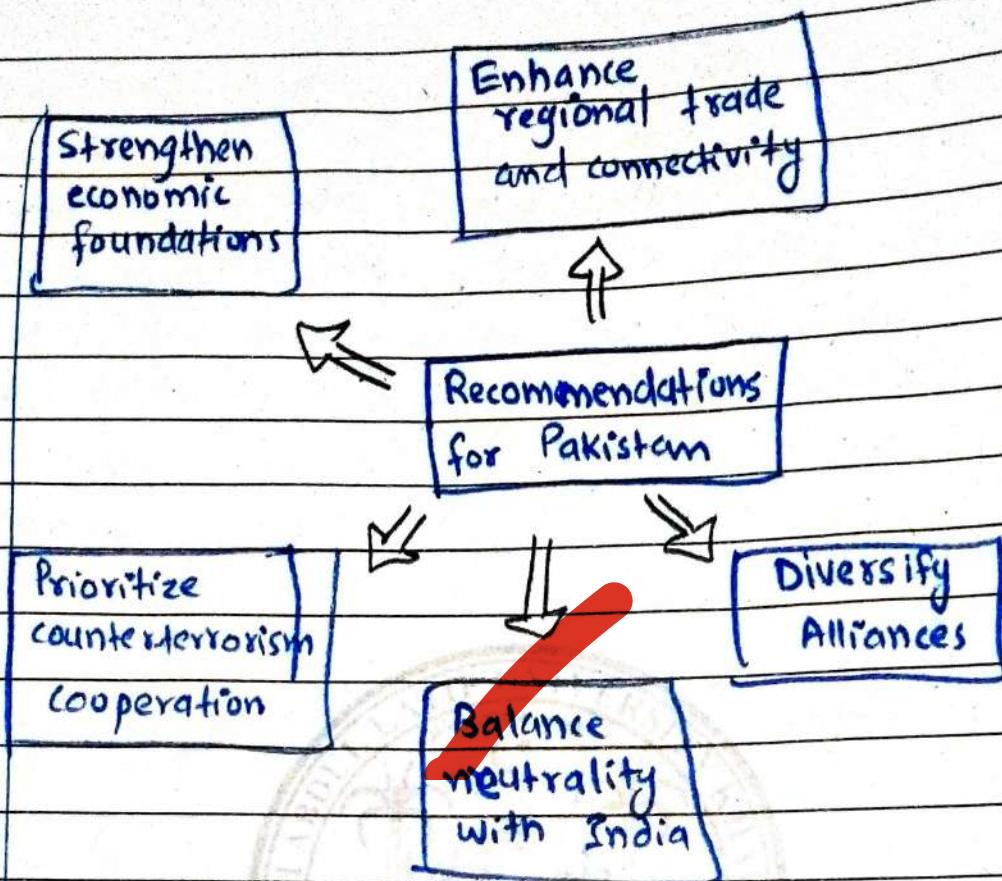 Enhance
regional trade
and connectivity
Strengthen
economic
foundations
Recommendations
for Pakistan
Prioritize
counterterrorism
cooperation
Diversify
Alliances
Balance
neutrality
with India